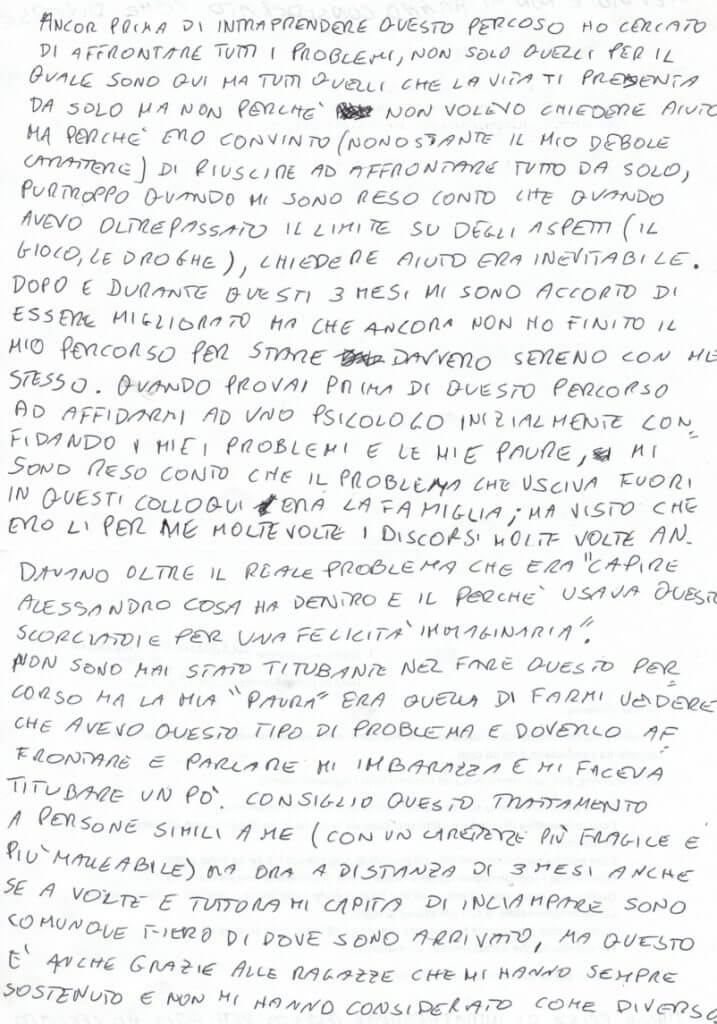 ANCOR PRIMA DI INTRAPRENDERE QUESTO PERCOSO HO CERCATO
DI AFFRONTARE TUTTI I PROBLEMI, NON SOLO QUELLI PER IL
QUALE SONO QUI MA TUTTI QUELLI CHE LA VITA TI PRESENTA
DA SOLO MA NON PERCHÈ NON VOLEVO CHIEDERE AIUTO
MA PERCHÈ ERO CONVINTO (NONOSTANTE IL MIO DEBOLE
CARATTERE) DI RIUSCIRE AD AFFRONTARE TUTTO DA SOLO,
PURTROPPO QUANDO MI SONO RESO CONTO CHE QUANDO
AVEVO OLTREPASSATO IL LIMITE SU DEGLI ASPETTI (IL
GIOCO, LE DROGHE), CHIEDERE AIUTO ERA INEVITABILE.
DOPO E DURANTE QUESTI 3 MESI MI SONO ACCORTO DI
ESSERE MIGLIORATO MA CHE ANCORA NON HO FINITO IL
MIO PERCORSO PER STARE DAVVERO SERENO CON ME
STESSO. QUANDO PROVAI PRIMA DI QUESTO PERCORSO
AD AFFIDARMI AD UNO PSICOLOGO INIZIALMENTE CON=
FIDANDO I MIEI PROBLEMI E LE MIE PAURE, MI
SONO RESO CONTO CHE IL PROBLEMA CHE USCIVA FUORI
IN QUESTI COLLOQUI ERA LA FAMIGLIA; MA VISTO CHE
ERO LI PER ME MOLTE VOLTE I DISCORSI MOLTE VOLTE AN-
DAVANO OLTRE IL REALE PROBLEMA CHE ERA "CAPIRE
ALESSANDRO COSA HA DENTRO E IL PERCHÈ USAVA QUESTE
SCORCIATOIE PER UNA FELICITÀ IMMAGINARIA".
NON SONO MAI STATO TITUBANTE NEL FARE QUESTO PER=
CORSO MA LA MIA "PAURA" ERA QUELLA DI FARMI VEDERE
CHE AVEVO QUESTO TIPO DI PROBLEMA E DOVERLO AF=
FRONTARE E PARLARE MI IMBARAZZA E MI FACEVA
TITUBARE UN PÒ. CONSIGLIO QUESTO TRATTAMENTO
A PERSONE SIMILI A ME (CON UN CARETTERE PIÙ FRAGILE E
PIÙ MALLEABILE) MA ORA A DISTANZA DI 3 MESI ANCHE
SE A VOLTE E TUTTORA MI CAPITA DI INCIAMPARE SONO
COMUNQUE FIERO DI DOVE SONO ARRIVATO, MA QUESTO
È ANCHE GRAZIE ALLE RAGAZZE CHE MI HANNO SEMPRE
SOSTENUTO E NON MI HANNO CONSIDERATO COME DIVERSO